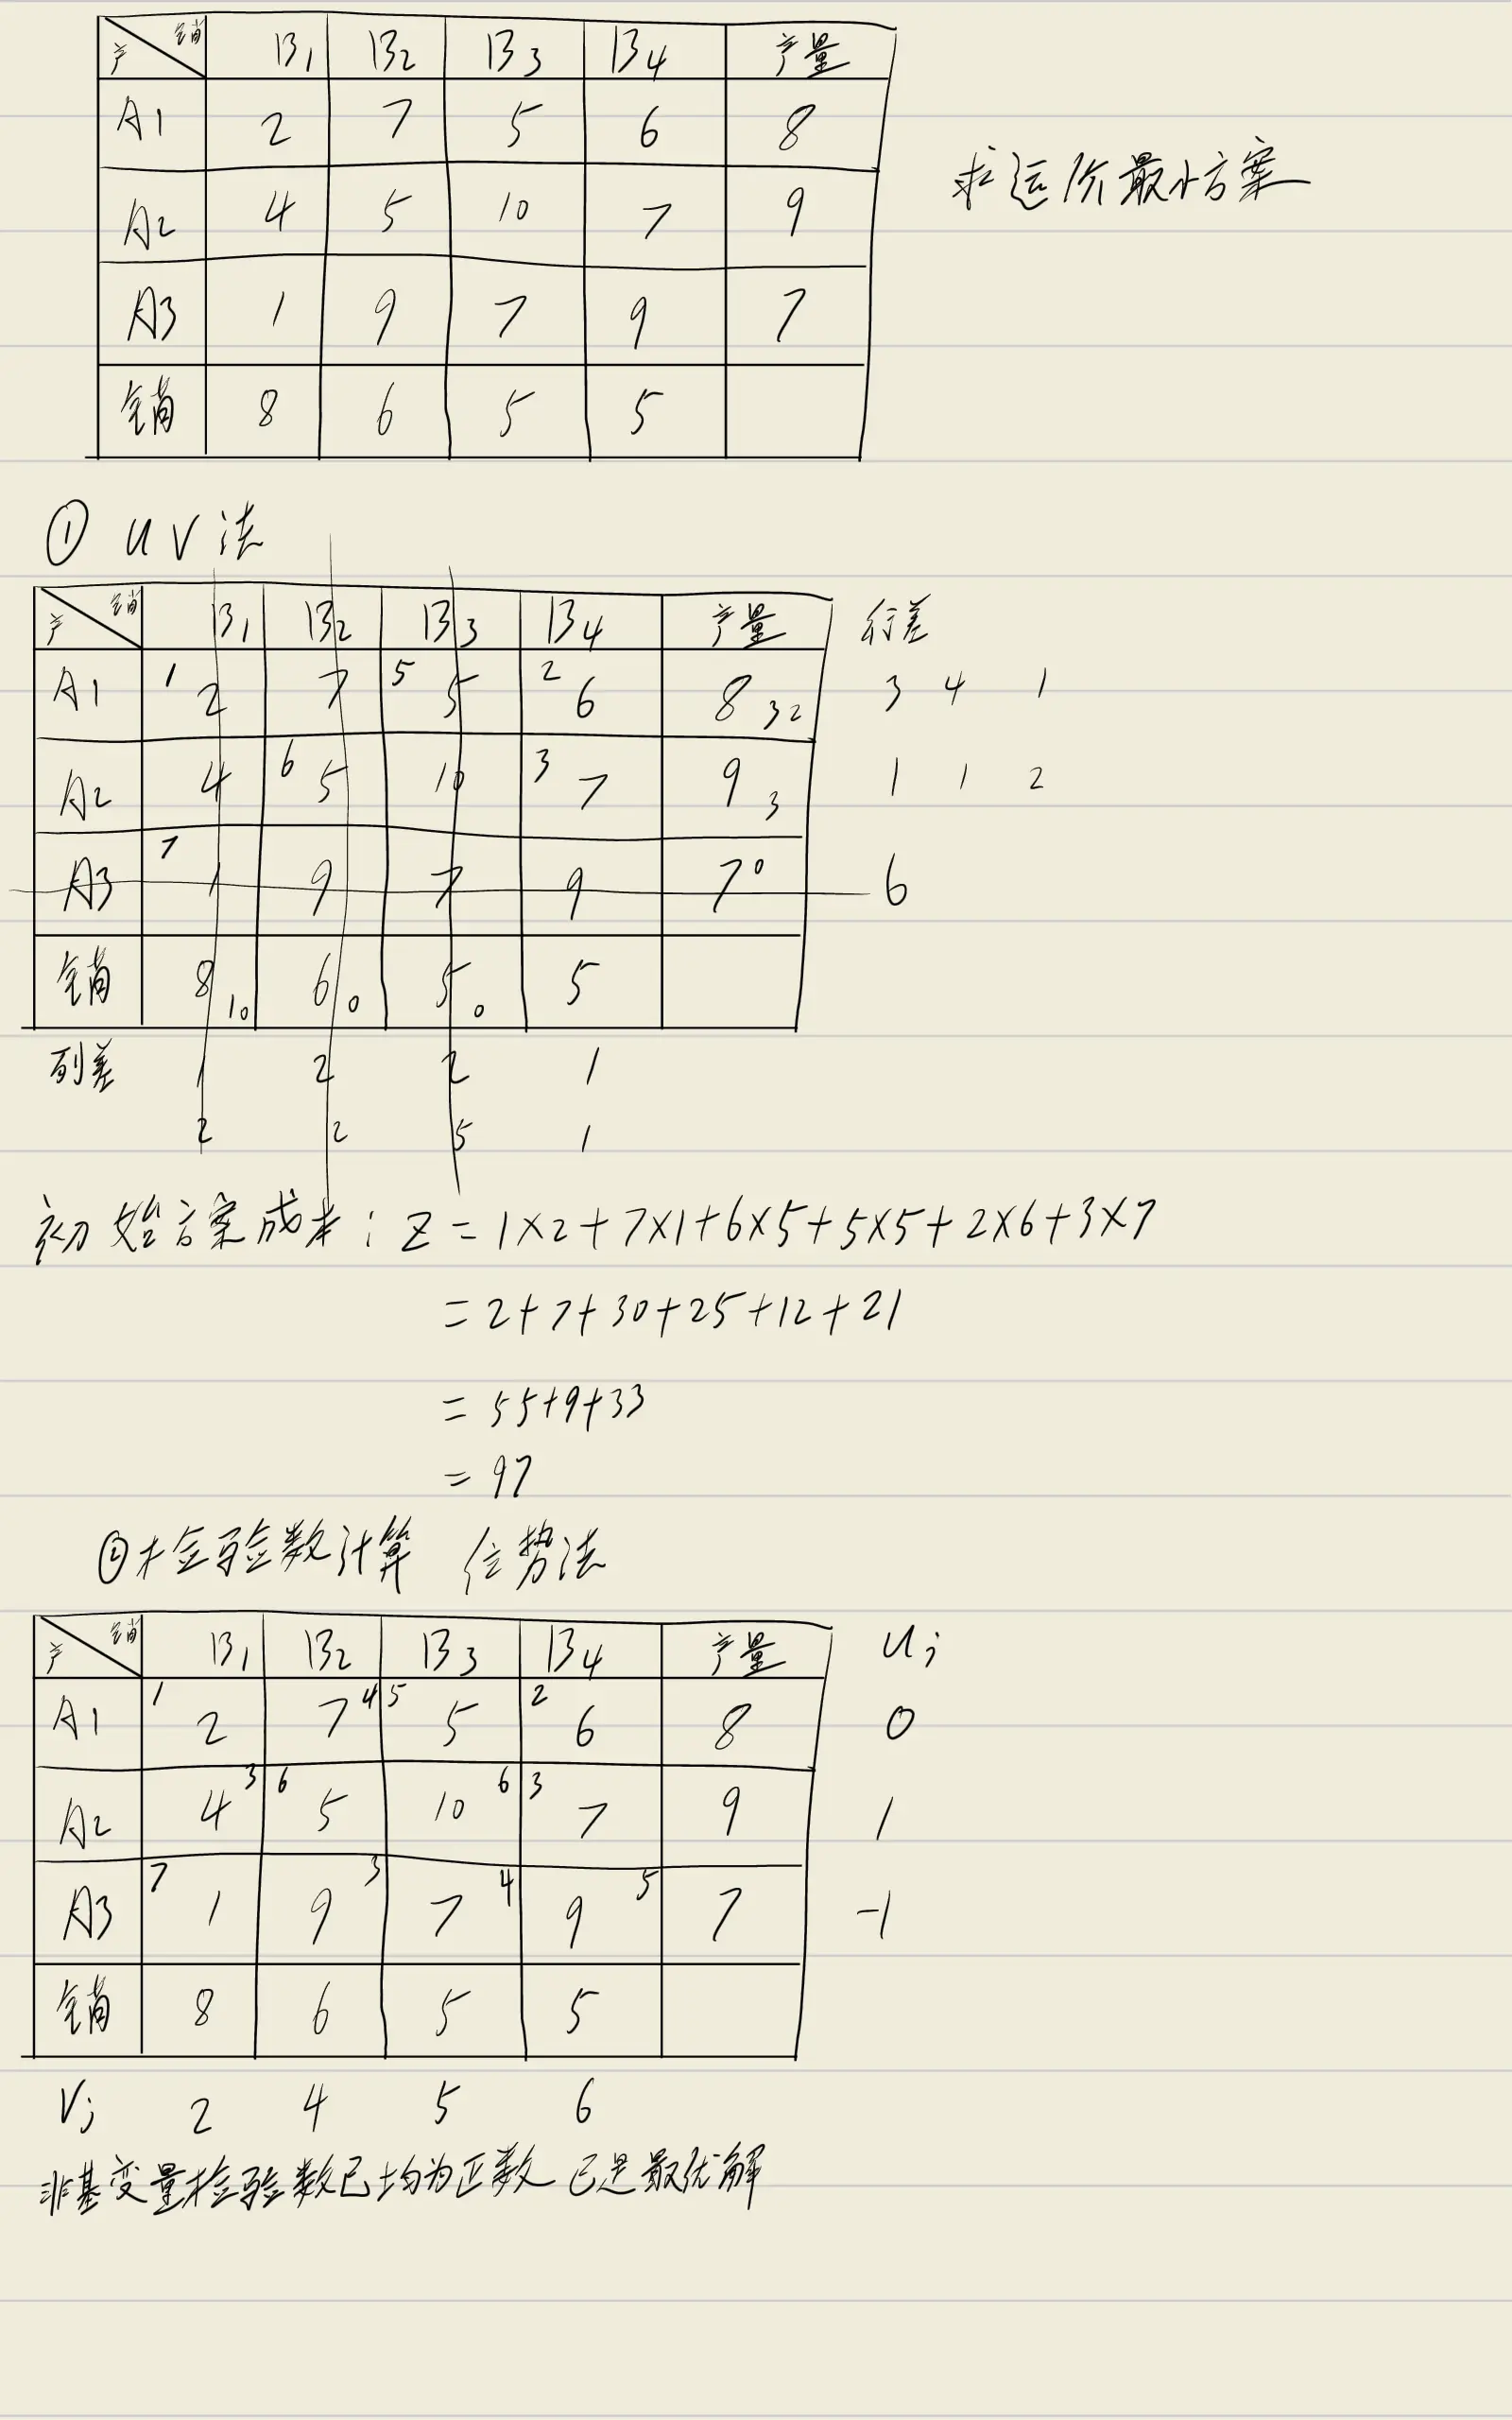 产 销 B1 B2 B3 B4 产量
A1 2 7 5 6 8
求运价最小方案
A2 4 5 10 7 9
A3 1 9 7 9 7
销 8 6 5 5
① UV法
产 销 B1 B2 B3 B4 产量 行差
A1 1 2 7 5 5 2 6 8 3 2 3 4 1
A2 4 6 5 10 3 7 9 3 1 1 2
A3 7 1 9 7 9 7 0 6
销 8 1 0 6 0 5 0 5
列差 1 2 2 1
2 2 5 1
初始方案成本: Z = 1×2+7×1+6×5+5×5+2×6+3×7
= 2+7+30+25+12+21
= 55+9+33
= 97
②检验数计算 位势法
产 销 B1 B2 B3 B4 产量 Ui
A1 1 2 7 4 5 5 2 6 8 0
A2 4 3 6 5 10 6 3 7 9 1
A3 7 1 9 3 7 4 9 5 7 -1
销 8 6 5 5
Vj 2 4 5 6
非基变量检验数已均为正数 已是最优解